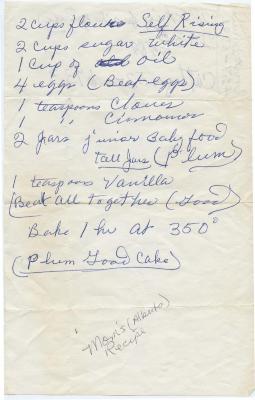 2 cups flour Self Rising
2 cups sugar white
1 cup of oil
4 eggs (Beat eggs)
1 teaspoons Cloves
1 " Cinnamon
2 jars junior Baby food
Tall Jars (Plum)
1 teaspoons Vanilla
(Beat All Together (Good)
Bake 1 hr at 350°
(Plum Good Cake)
Mom's
Recipe